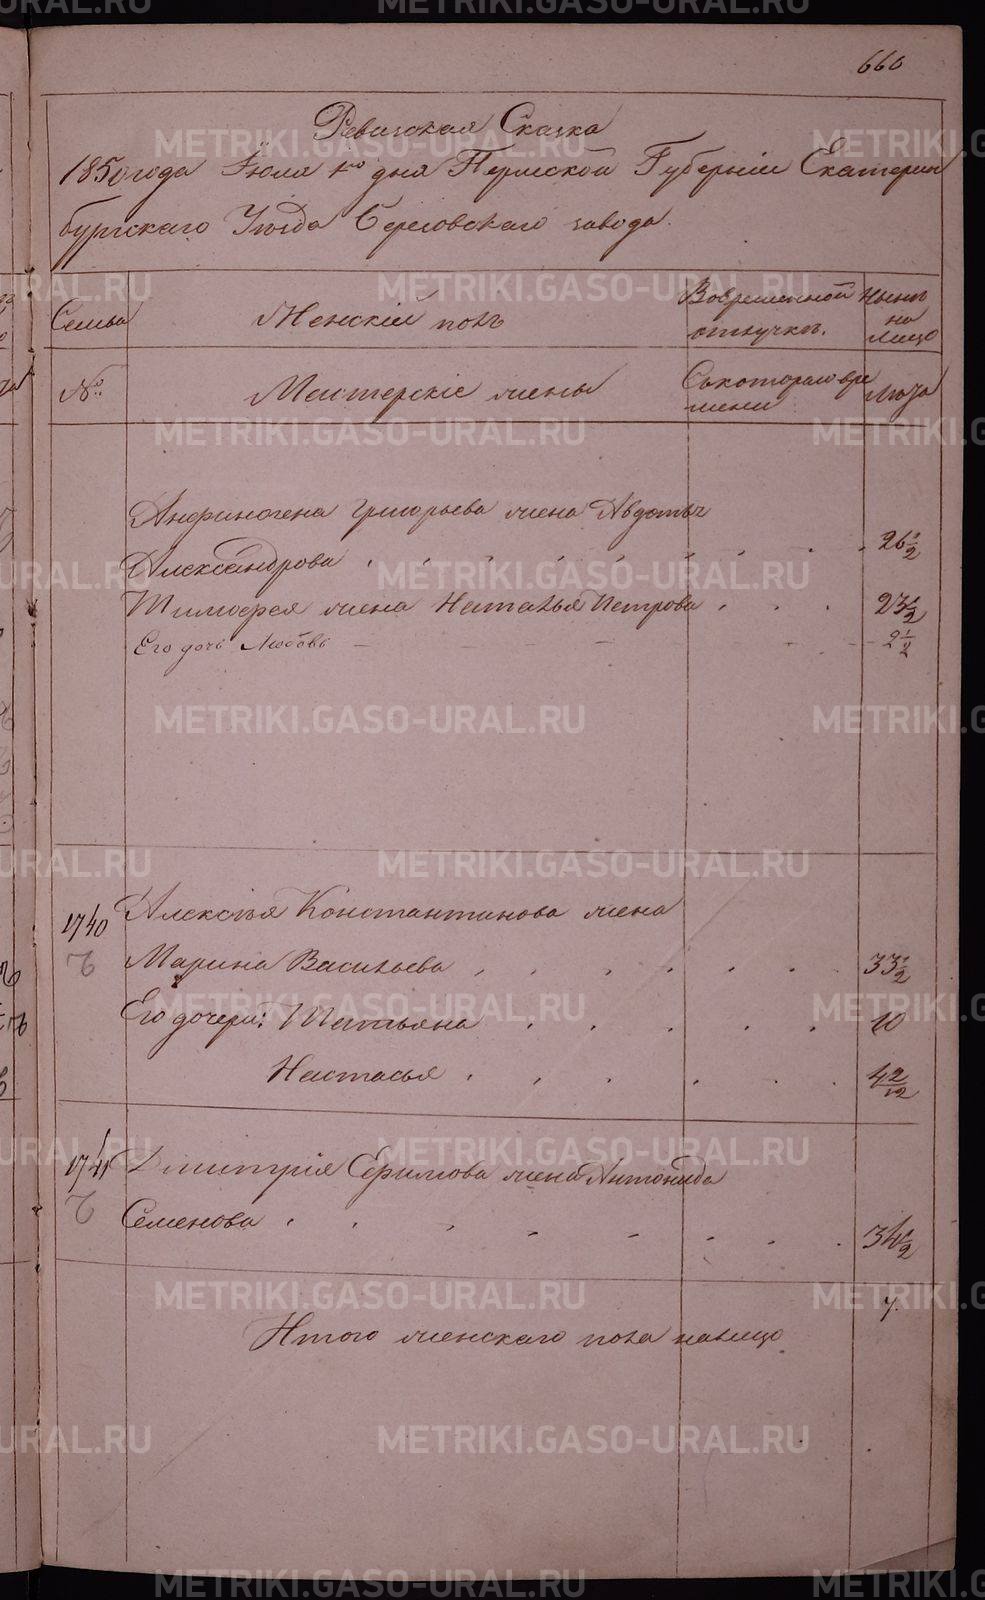 660
Ревизская Сказка
1850 года Июля 1го дня Пермской Губерніи Екатерин
бургскаго Уѣзда Березовскаго завода.
Семья
Женскій полъ
Вовременной отлучкѣ.
Нынѣ на лицо
№:
Мастерскіе жены
Скотораго вре мени
Лѣта
Анфиногена Григорьева жена Авдотья
Александрова 26½
Тимофея жена Наталья Петрова 23½
Его дочь Любовь 2½
1740 Алексѣя Константинова жена
Марина Васильева 33½
Его дочери: Татьяна 10
Настасья 4 2/12
1741 Дмитрія Ефимова жена Антонида
Семенова 34½
7.
Итого женскаго пола налицо
METRIKI.GASO-URAL.RU